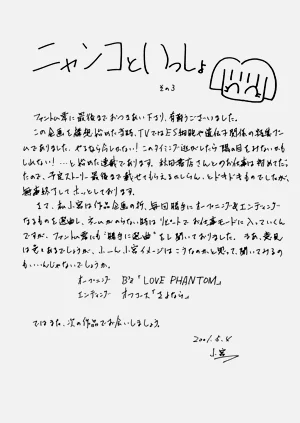 ニャンコといっしょ
その3
ファントム宴に最後までおつきあい下さり、有難うございました。
この企画を構想し始めた当時、TVではES細胞や遺伝子関係の特集が
ありました。やるなら今しかない!このタイミング逃がしたら陽の目をみないかも
しれない!…と始めた連載であります。秋田書店さんとのお仕事は初めてだっ
たので、予定ストーリー最後まで載せてもらえるのかしらん、とドキドキものでしたが、
無事終了してホッとしております。
さて、私小宮は作品企画の折、毎回勝手にオープニング&エンディング
なるものを選曲し、ネームがのらない時はリピートでお仕事モードに入っていくん
ですが、ファントム宴にも"勝手に選曲"をし聞いておりました。まあ、発見
は
でしょうが、ふーん小宮イメージはこうなのか、と思って聞いてみるの
も…いんじゃないでしょうか。
オープニング B'z「LOVE PHANTOM」
エンディング オフコース「さよなら」
ではまた、次の作品でお会いしましょう。
2001.5.4
小宮